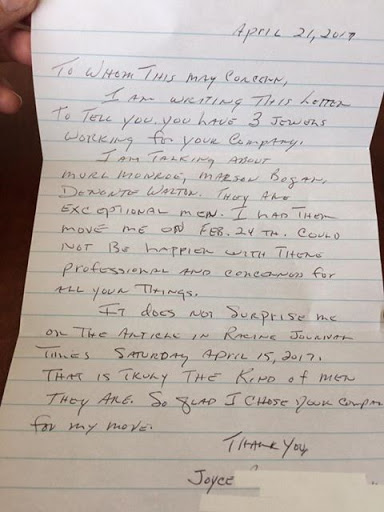 April 21, 2017
To Whom This May Concern,
I am writing this letter
To Tell you. you have 3 Jewels
working for your company.
I am Talking about
Murl Monroe, Marson Bogan,
Devonte Walton. They are
exceptional men. I had them
move me on Feb. 24 th. Could
not be happier with there
professional and concerned for
all your Things.
It does not surprise me
on the Article in Racine Journal
Times Saturday April 15, 2017.
That is truly the kind of men
They are. So glad I chose your compan
for my move.
Thank you,
Joyce